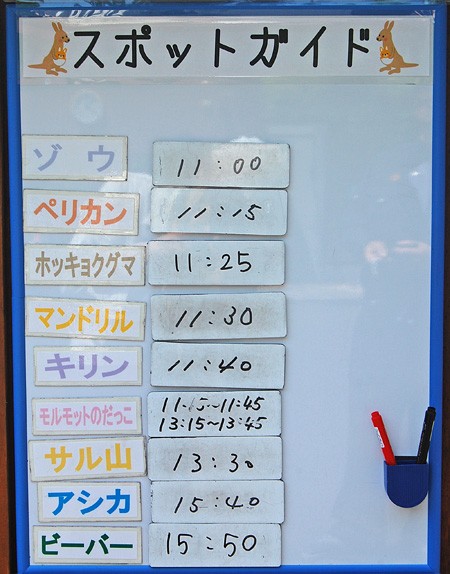 スポットガイド
ゾウ 11:00
ペリカン 11:15
ホッキョクグマ 11:25
マンドリル 11:30
キリン 11:40
モルモットのだっこ 11:15~11:45
13:15~13:45
サル山 13:30
アシカ 15:40
ビーバー 15:50